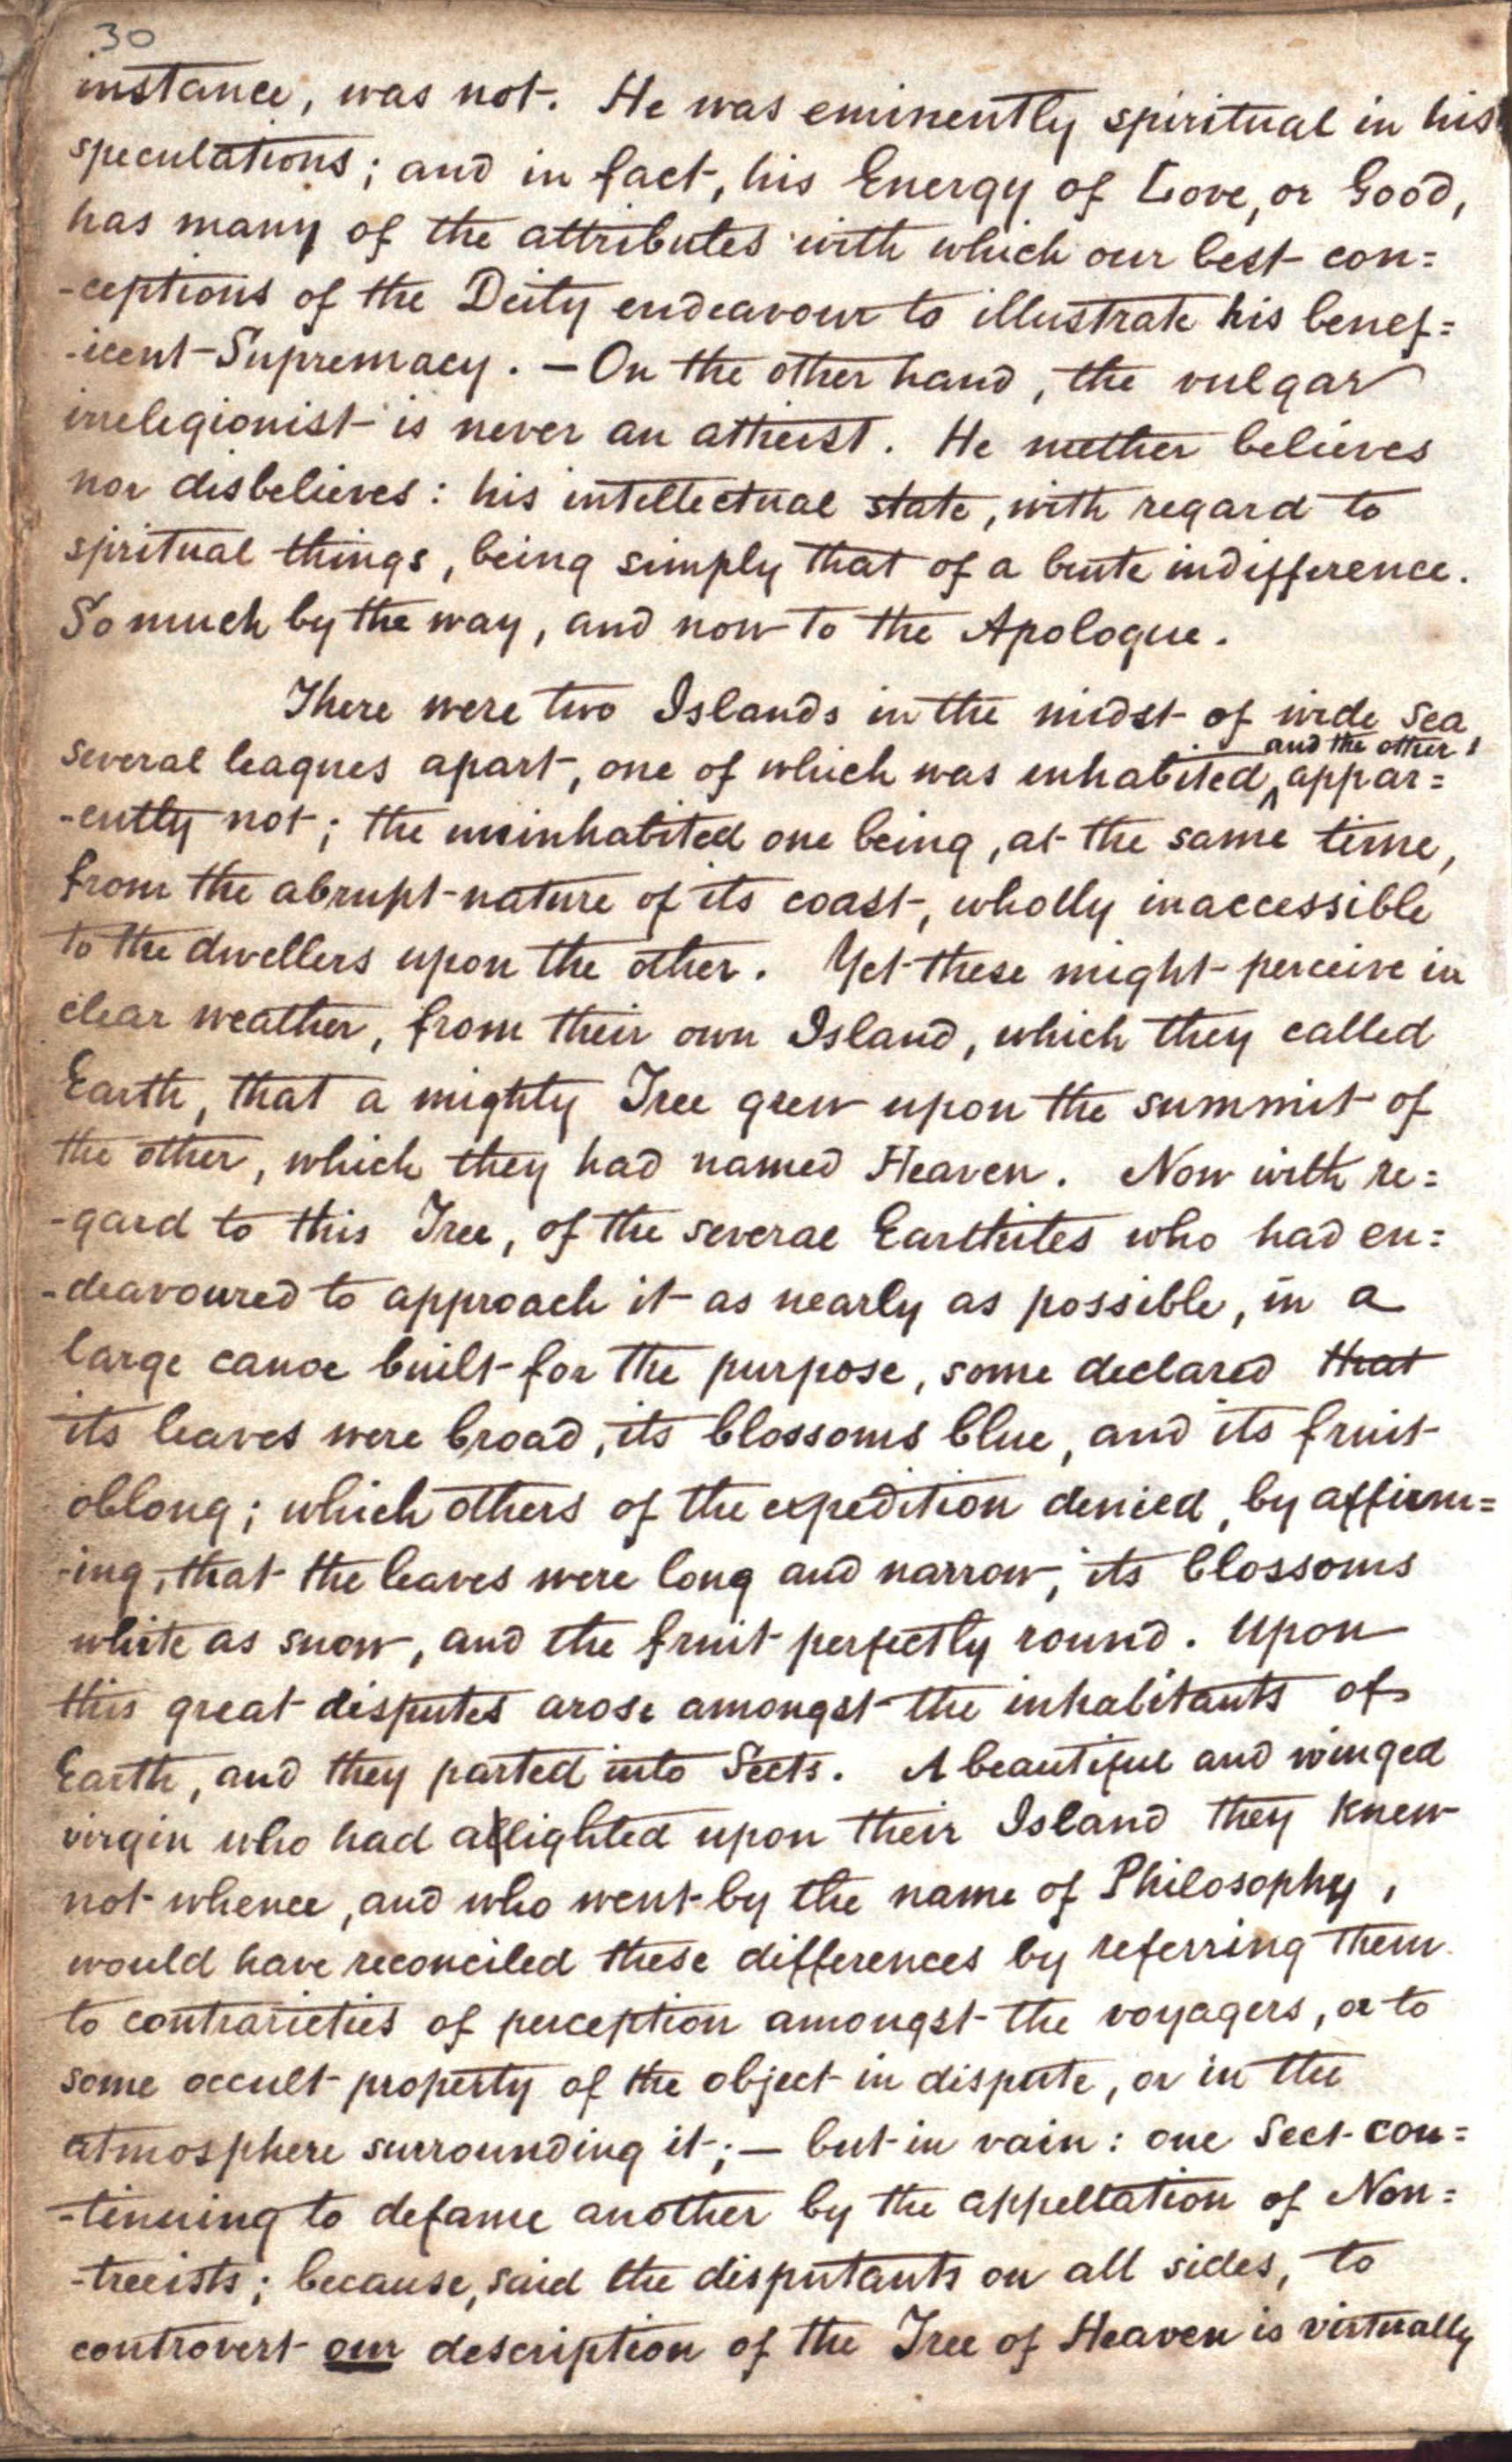 30
instance, was not. He was eminently spiritual in his
speculations; and in fact, his Energy of Love, or Good,
has many of the attributes with which our best con=
-ceptions of the Deity endeavour to illustrate his benef=
-icent Supremacy. — On the other hand, the vulgar
irreligionist is never an atheist. He neither believes
nor disbelieves: his intellectual state, with regard to
spiritual things, being simply that of a brute indifference.
So much by the way, and now to the Apologue.
There were two Islands in the midst of wide sea
and the other
several leagues apart, one of which was inhabited, appar=
-ently not; the uninhabited one being, at the same time,
from the abrupt nature of its coast, wholly inaccessible
to the dwellers upon the other. Yet these might perceive in
clear weather, from their own Island, which they called
Earth, that a mighty Tree grew upon the summit of
the other, which they had named Heaven. Now with re=
-gard to this Tree, of the several Earthites who had en=
-deavoured to approach it as nearly as possible, in a
large canoe built for the purpose, some declared that
its leaves were broad, its blossoms blue, and its fruit
oblong; which others of the expedition denied, by affirm=
-ing, that the leaves were long and narrow, its blossoms
white as snow, and the fruit perfectly round. Upon
this great disputes arose amongst the inhabitants of
Earth, and they parted into Sects. A beautiful and winged
virgin who had alighted upon their Island they knew
not whence, and who went by the name of Philosophy,
would have reconciled these differences by referring them
to contrarieties of perception amongst the voyagers, or to
some occult property of the object in dispute, or in the
atmosphere surrounding it; — but in vain: one Sect con=
-tinuing to defame another by the appellation of Non=
-treeists; because, said the disputants on all sides, to
controvert our description of the Tree of Heaven is virtually